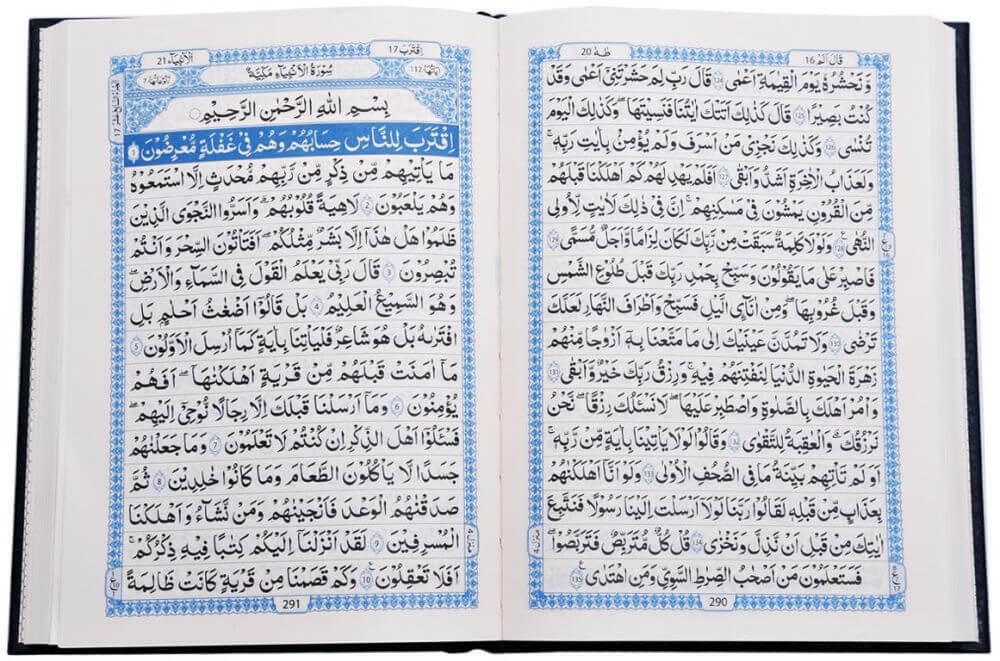 قال الم 16
طه 20
وَّنَحْشُرُهٗ یَوْمَ الْقِیٰمَةِ اَعْمٰی 124 قَالَ رَبِّ لِمَ حَشَرْتَنِیْۤ اَعْمٰی وَقَدْ
كُنْتُ بَصِیْرًا 125 قَالَ كَذٰلِكَ اَتَتْكَ اٰیٰتُنَا فَنَسِیْتَهَا ۚ وَكَذٰلِكَ الْیَوْمَ
تُنْسٰی 126 وَكَذٰلِكَ نَجْزِیْ مَنْ اَسْرَفَ وَلَمْ یُؤْمِنْۢ بِاٰیٰتِ رَبِّهٖ ؕ
وَلَعَذَابُ الْاٰخِرَةِ اَشَدُّ وَاَبْقٰی 127 اَفَلَمْ یَهْدِ لَهُمْ كَمْ اَهْلَكْنَا قَبْلَهُمْ
مِّنَ الْقُرُوْنِ یَمْشُوْنَ فِیْ مَسٰكِنِهِمْ ؕ اِنَّ فِیْ ذٰلِكَ لَاٰیٰتٍ لِّاُولِی
النُّهٰی 128 وَلَوْلَا كَلِمَةٌ سَبَقَتْ مِنْ رَّبِّكَ لَكَانَ لِزَامًا وَّاَجَلٌ مُّسَمًّی 129
فَاصْبِرْ عَلٰی مَا یَقُوْلُوْنَ وَسَبِّحْ بِحَمْدِ رَبِّكَ قَبْلَ طُلُوْعِ الشَّمْسِ
وَقَبْلَ غُرُوْبِهَا ۚ وَمِنْ اٰنَآئِ الَّیْلِ فَسَبِّحْ وَاَطْرَافَ النَّهَارِ لَعَلَّكَ
تَرْضٰی 130 وَلَا تَمُدَّنَّ عَیْنَیْكَ اِلٰی مَا مَتَّعْنَا بِهٖۤ اَزْوَاجًا مِّنْهُمْ
زَهْرَةَ الْحَیٰوةِ الدُّنْیَا لِنَفْتِنَهُمْ فِیْهِ ؕ وَرِزْقُ رَبِّكَ خَیْرٌ وَّاَبْقٰی 131
وَاْمُرْ اَهْلَكَ بِالصَّلٰوةِ وَاصْطَبِرْ عَلَیْهَا ؕ لَا نَسْئَلُكَ رِزْقًا ؕ نَحْنُ
نَرْزُقُكَ ؕ وَالْعَاقِبَةُ لِلتَّقْوٰی 132 وَقَالُوْا لَوْلَا یَاْتِیْنَا بِاٰیَةٍ مِّنْ رَّبِّهٖ ؕ
اَوَلَمْ تَاْتِهِمْ بَیِّنَةُ مَا فِی الصُّحُفِ الْاُوْلٰی 133 وَلَوْ اَنَّاۤ اَهْلَكْنٰهُمْ
بِعَذَابٍ مِّنْ قَبْلِهٖ لَقَالُوْا رَبَّنَا لَوْلَاۤ اَرْسَلْتَ اِلَیْنَا رَسُوْلًا فَنَتَّبِعَ
اٰیٰتِكَ مِنْ قَبْلِ اَنْ نَّذِلَّ وَنَخْزٰی 134 قُلْ كُلٌّ مُّتَرَبِّصٌ فَتَرَبَّصُوْا ۚ
فَسَتَعْلَمُوْنَ مَنْ اَصْحٰبُ الصِّرَاطِ السَّوِیِّ وَمَنِ اهْتَدٰی 135
290
اقترب 17
الانبیاء 21
اٰیَاتُهَا 112
سُوْرَةُ الْاَنْبِیَآءِ مَكِّیَّةٌ
رُكُوْعَاتُهَا 7
بِسْمِ اللّٰهِ الرَّحْمٰنِ الرَّحِیْمِ
اِقْتَرَبَ لِلنَّاسِ حِسَابُهُمْ وَهُمْ فِیْ غَفْلَةٍ مُّعْرِضُوْنَ 1
مَا یَاْتِیْهِمْ مِّنْ ذِكْرٍ مِّنْ رَّبِّهِمْ مُّحْدَثٍ اِلَّا اسْتَمَعُوْهُ
وَهُمْ یَلْعَبُوْنَ 2 لَاهِیَةً قُلُوْبُهُمْ ؕ وَاَسَرُّوا النَّجْوَی الَّذِیْنَ
ظَلَمُوْا هَلْ هٰذَاۤ اِلَّا بَشَرٌ مِّثْلُكُمْ ۚ اَفَتَاْتُوْنَ السِّحْرَ وَاَنْتُمْ
تُبْصِرُوْنَ 3 قَالَ رَبِّیْ یَعْلَمُ الْقَوْلَ فِی السَّمَآءِ وَالْاَرْضِ ؗ
وَهُوَ السَّمِیْعُ الْعَلِیْمُ 4 بَلْ قَالُوْۤا اَضْغَاثُ اَحْلَامٍۭ بَلِ
افْتَرٰىهُ بَلْ هُوَ شَاعِرٌ ۖۚ فَلْیَاْتِنَا بِاٰیَةٍ كَمَاۤ اُرْسِلَ الْاَوَّلُوْنَ 5
مَاۤ اٰمَنَتْ قَبْلَهُمْ مِّنْ قَرْیَةٍ اَهْلَكْنٰهَا ۚ اَفَهُمْ
یُؤْمِنُوْنَ 6 وَمَاۤ اَرْسَلْنَا قَبْلَكَ اِلَّا رِجَالًا نُّوْحِیْۤ اِلَیْهِمْ
فَسْئَلُوْۤا اَهْلَ الذِّكْرِ اِنْ كُنْتُمْ لَا تَعْلَمُوْنَ 7 وَمَا جَعَلْنٰهُمْ
جَسَدًا لَّا یَاْكُلُوْنَ الطَّعَامَ وَمَا كَانُوْا خٰلِدِیْنَ 8 ثُمَّ
صَدَقْنٰهُمُ الْوَعْدَ فَاَنْجَیْنٰهُمْ وَمَنْ نَّشَآءُ وَاَهْلَكْنَا
الْمُسْرِفِیْنَ 9 لَقَدْ اَنْزَلْنَاۤ اِلَیْكُمْ كِتٰبًا فِیْهِ ذِكْرُكُمْ ؕ
اَفَلَا تَعْقِلُوْنَ 10 وَكَمْ قَصَمْنَا مِنْ قَرْیَةٍ كَانَتْ ظَالِمَةً
291